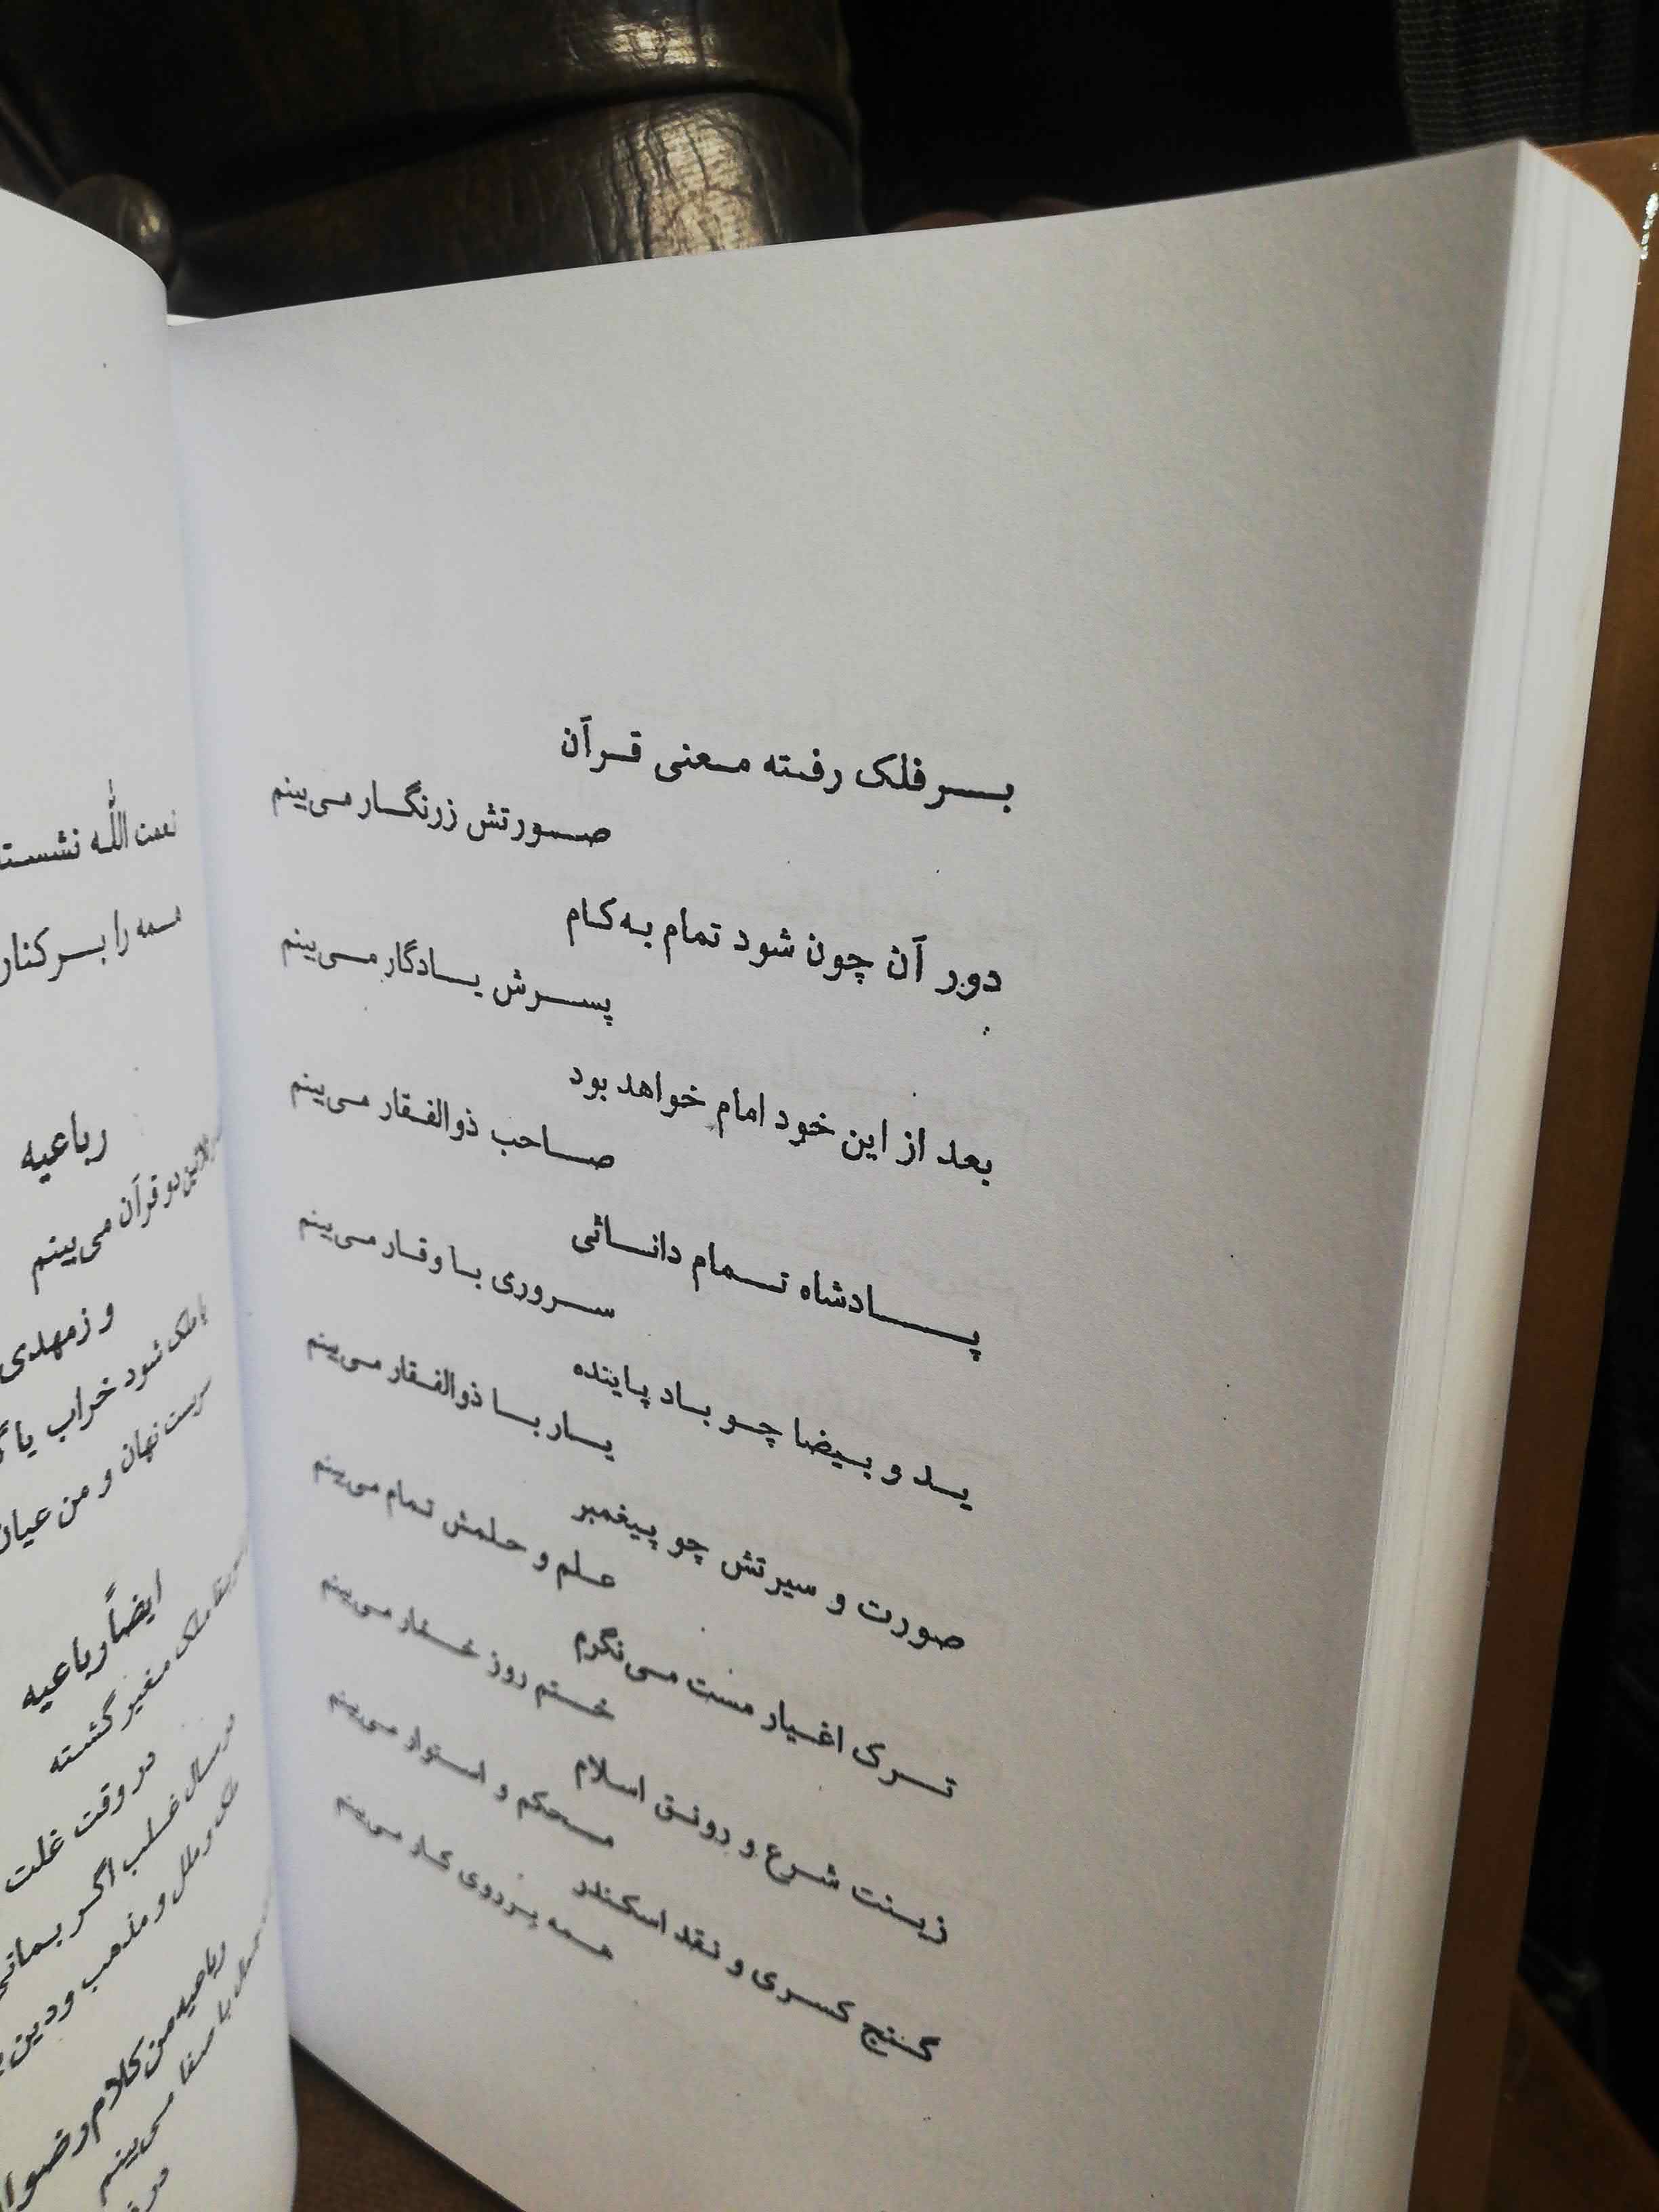 بر فلک رفته معنی قرآن
صورتش زرنگار می‌بینم
دور آن چون شود تمام به کام
پسرش یادگار می‌بینم
بعد از این خود امام خواهد بود
صاحب ذوالفقار می‌بینم
پادشاه تمام دانائی
سروری با وقار می‌بینم
ید و بیضا چو باد پاینده
یار با ذوالفقار می‌بینم
صورت و سیرتش چو پیغمبر
علم و حلمش تمام می‌بینم
ترک اغیار مست می‌نگرم
خصم روز خمار می‌بینم
زینت شرع و رونق اسلام
محکم و استوار می‌بینم
گنج کسری و نقد اسکندر
همه بر روی کار می‌بینم
نعمت اللّه نشسته
همه را بر کنار
رباعیه
دو قرآن می‌بینم
و ز مهدی
ملک شود خراب یا
نهان و من عیان
ایضاً رباعیه
ملک مغیر گشته
در وقت غلت
در سال غلب اگر بمانی
ملک و ملل و مذهب و دین
رباعیه من کلام
با صفا می‌بینم